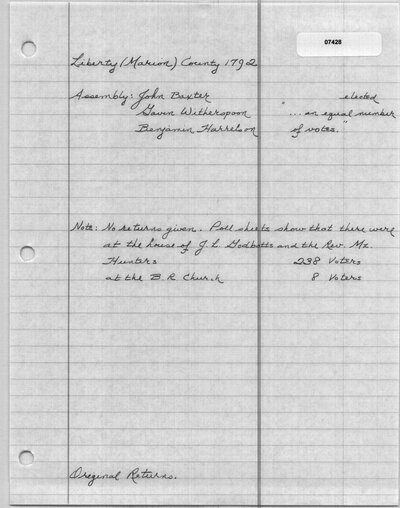 07428
Liberty (Marion) County 1792
Assembly: John Baxter " elected
Gavin Witherspoon ... an equal number
Benjamin Harrelson of votes."
Note: No returns given. Poll sheets show that there were
at the house of J. L. Godbolts and the Rev. Mr.
Hunters 238 Voters
at the B. R. Church 8 Voters
Original Returns.